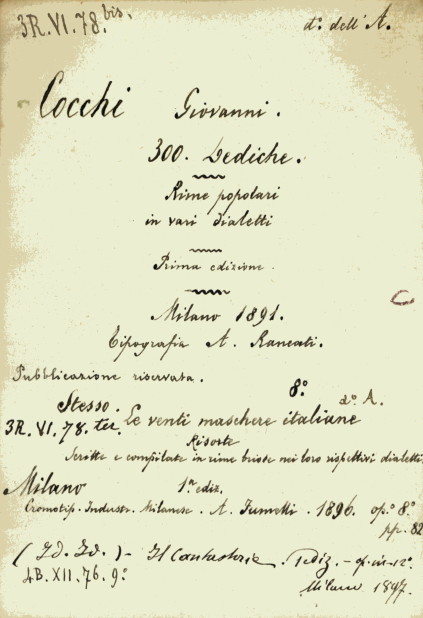 3R. VI. 78. bis.
d.° dell' A.
Cocchi Giovanni.
300. Dediche.
Rime popolari
in vari dialetti
Prima edizione
Milano 1891.
Tipografia A. Rancati.
Pubblicazione riservata.
8.°
Stesso. d.° A.
3R. VI. 78. ter. Le venti maschere italiane
Risorte
Scritte e compilate in rime briose nei loro rispettivi dialetti.
Milano 1.a ediz.
Cromotip. Industr. Milanese. A. 1896. op.° 8.°
pp. 82
(Id. Id.) - Il Cantastorie. 1 ediz. - op. in-12.°
4B. XII. 76. 9.° Milano 1897.